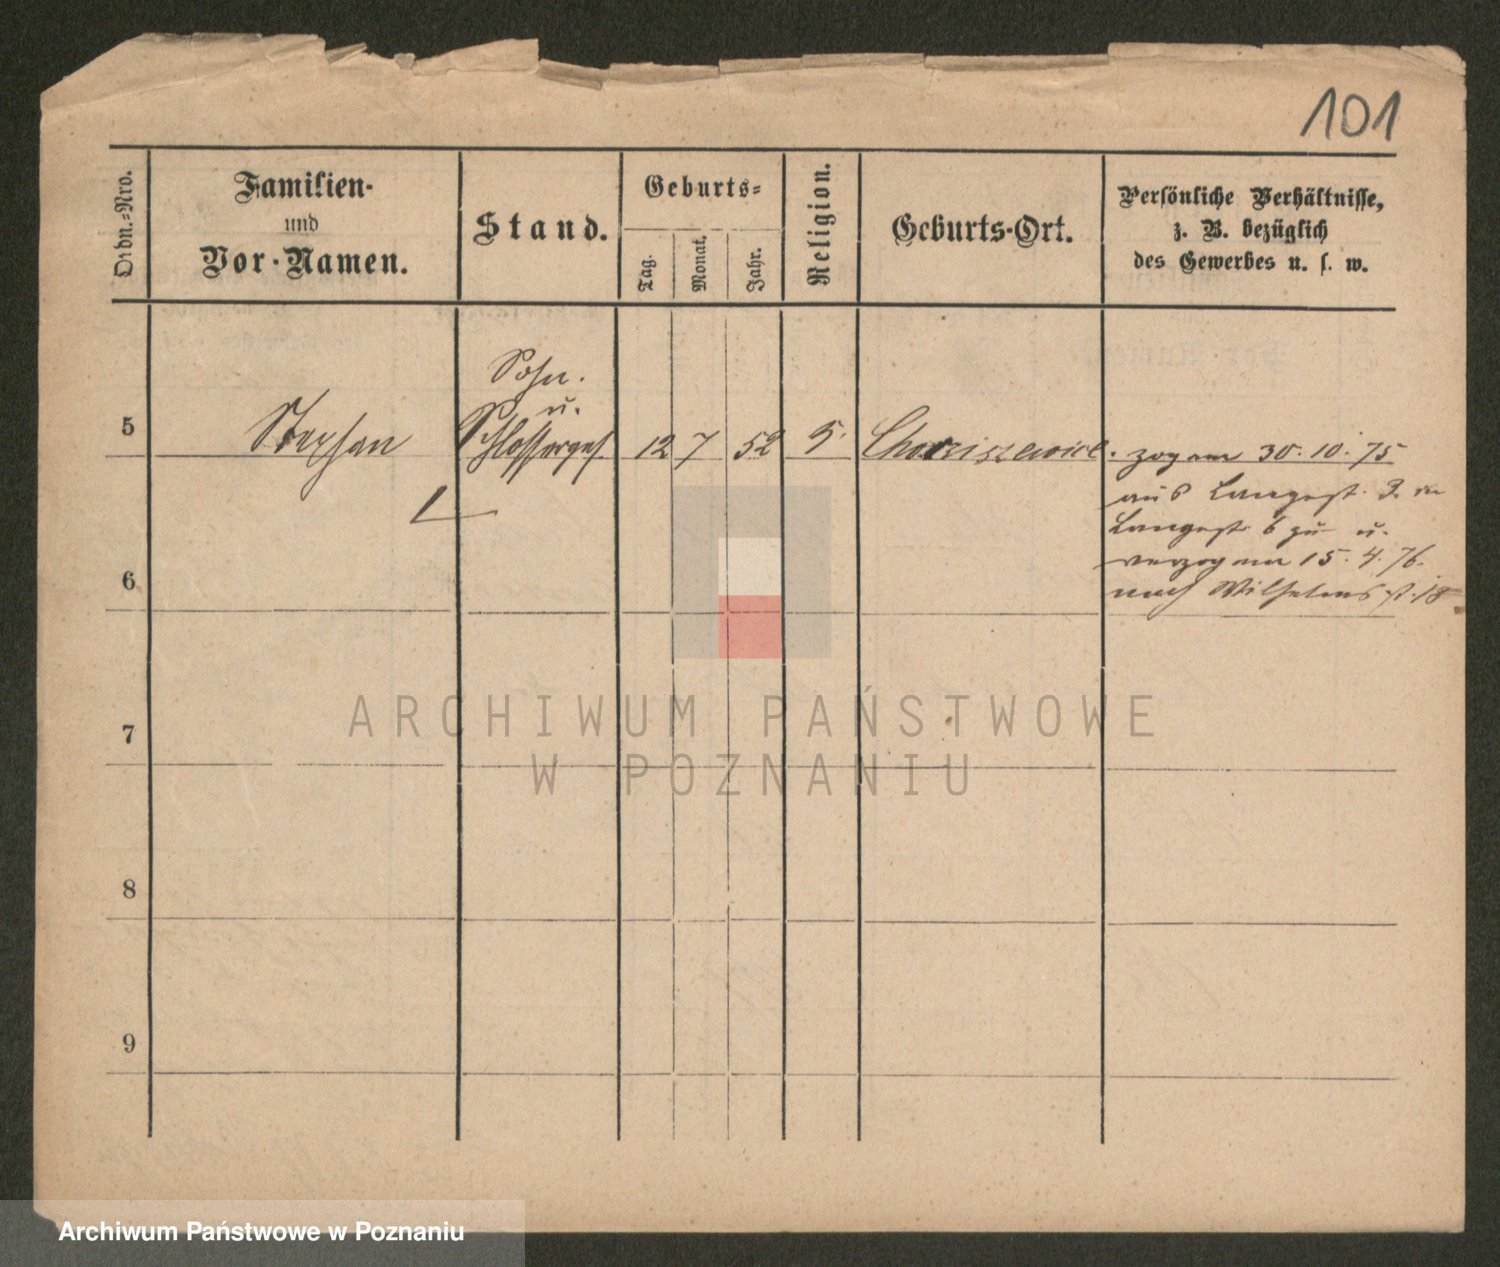 101
Ordn.=Nro.
Familien-
und
Vor-Namen.
Stand.
Geburts=
Tag.
Monat.
Jahr.
Religion.
Geburts-Ort.
Persönliche Verhältnisse,
z. B. bezüglich
des Gewerbes u. s. w.
Sohn.
u.
5 Stephan Schlosserges. 12 7 52 zog am 30. 10. 75
aus Langest. 3. in
Langest 6 zu u.
verzog am 15. 4. 76.
6
nach Wilhelmsst. 18
7
8
9
ARCHIWUM PAŃSTWOWE
W POZNANIU
Archiwum Państwowe w Poznaniu